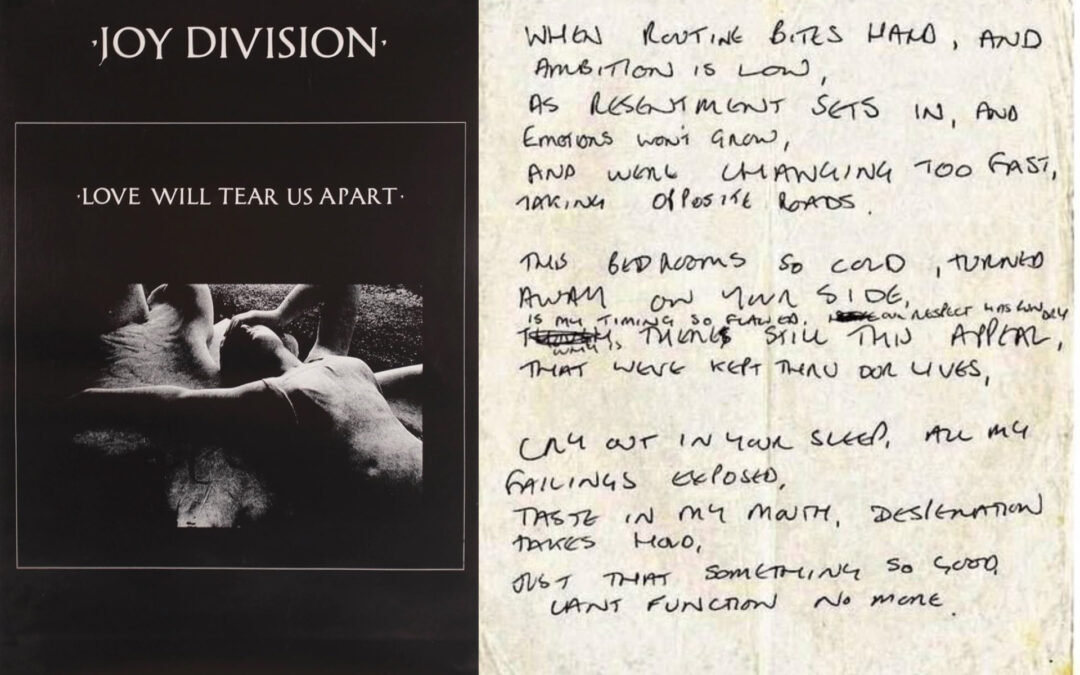 ·JOY DIVISION·
·LOVE WILL TEAR US APART·
WHEN ROUTINE BITES HARD, AND
AMBITION IS LOW,
AS RESENTMENT SETS IN, AND
EMOTIONS WON'T GROW,
AND WERE CHANGING TOO FAST,
TAKING OPPOSITE ROADS.
THIS BEDROOMS SO COLD, TURNED
AWAY ON YOUR SIDE,
IS MY TIMING SO FLAWED. OUR RESPECT HAS RUN DRY
WHY IS
THERES STILL THIS APPEAL,
THAT WEVE KEPT THRU OUR LIVES,
CRY OUT IN YOUR SLEEP, ALL MY
FAILINGS EXPOSED,
TASTE IN MY MOUTH, DESPERATION
TAKES HOLD,
JUST THAT SOMETHING SO GOOD
CANT FUNCTION NO MORE.